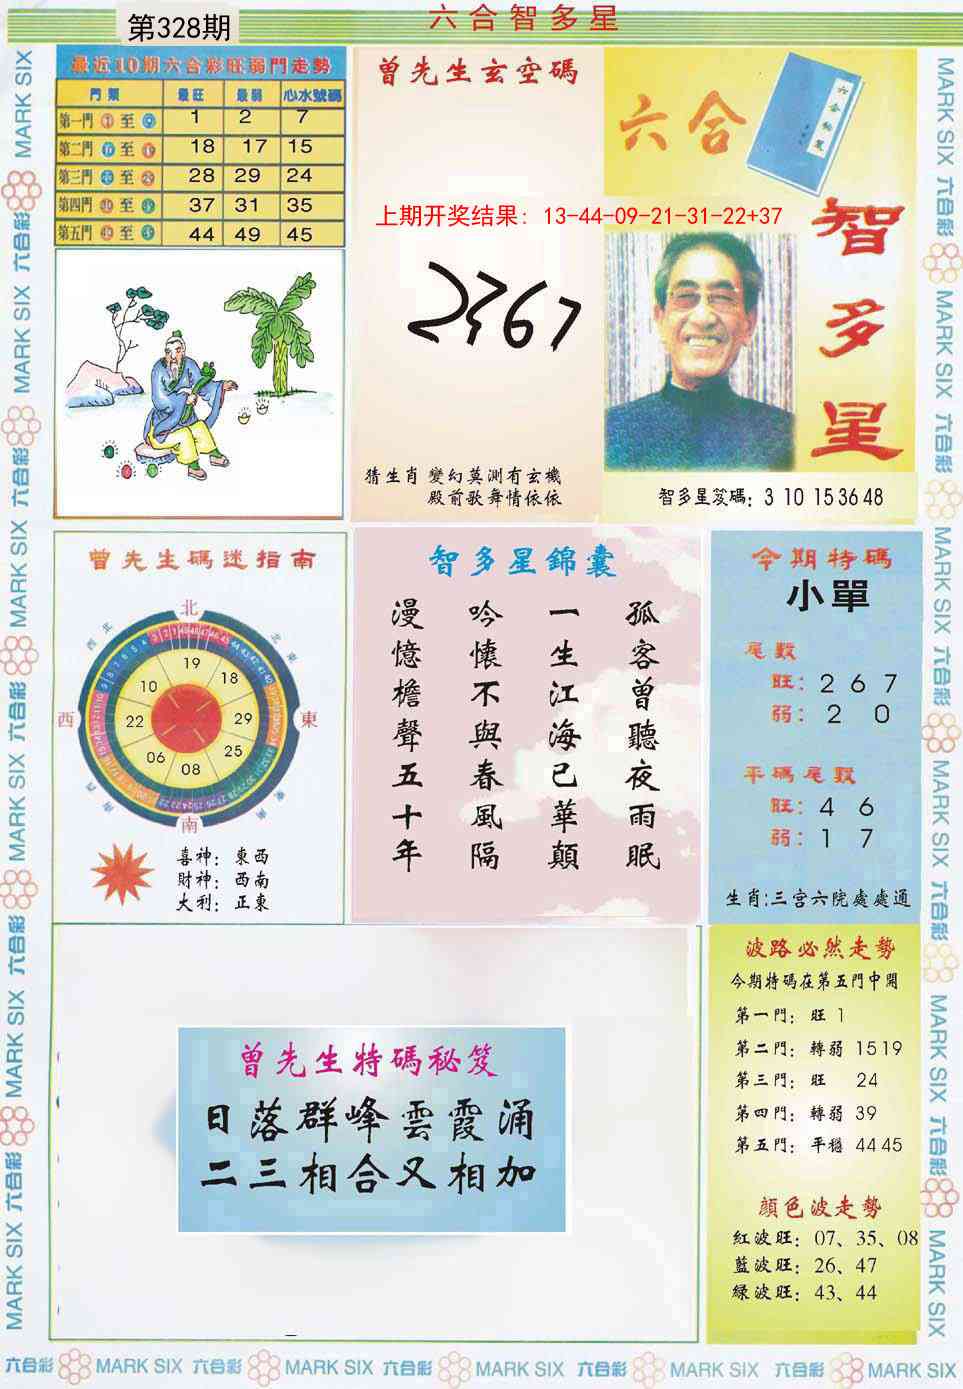 第328期
六合智多星
最近10期六合彩旺弱門走勢
門類 最旺 最弱 心水號碼
第一門 至 1 2 7
第二門 至 18 17 15
第三門 至 28 29 24
第四門 至 37 31 35
第五門 至 44 49 45
曾先生玄空碼
上期开奖结果：13-44-09-21-31-22+37
2367
猜生肖 變幻莫測有玄機
殿前歌舞情依依
六合
智多星
智多星笈碼：3 10 15 36 48
曾先生碼迷指南
北
東
南
西
19
18
29
25
08
06
22
10
喜神：東西
財神：西南
大利：正東
智多星錦囊
孤客曾聽夜雨眠
一生江海已華顛
吟懷不與春風隔
漫憶檐聲五十年
今期特碼
小單
尾數
旺：2 6 7
弱：2 0
平碼尾數
旺：4 6
弱：1 7
生肖：三宮六院處處通
曾先生特碼秘笈
日落群峰雲霞涌
二三相合又相加
波路必然走勢
今期特碼在第五門中開
第一門：旺 1
第二門：轉弱 15 19
第三門：旺 24
第四門：轉弱 39
第五門：平穩 44 45
顔色波走勢
紅波旺：07、35、08
藍波旺：26、47
綠波旺：43、44
六合彩 MARK SIX 六合彩 MARK SIX 六合彩 MARK SIX 六合彩 MARK SIX